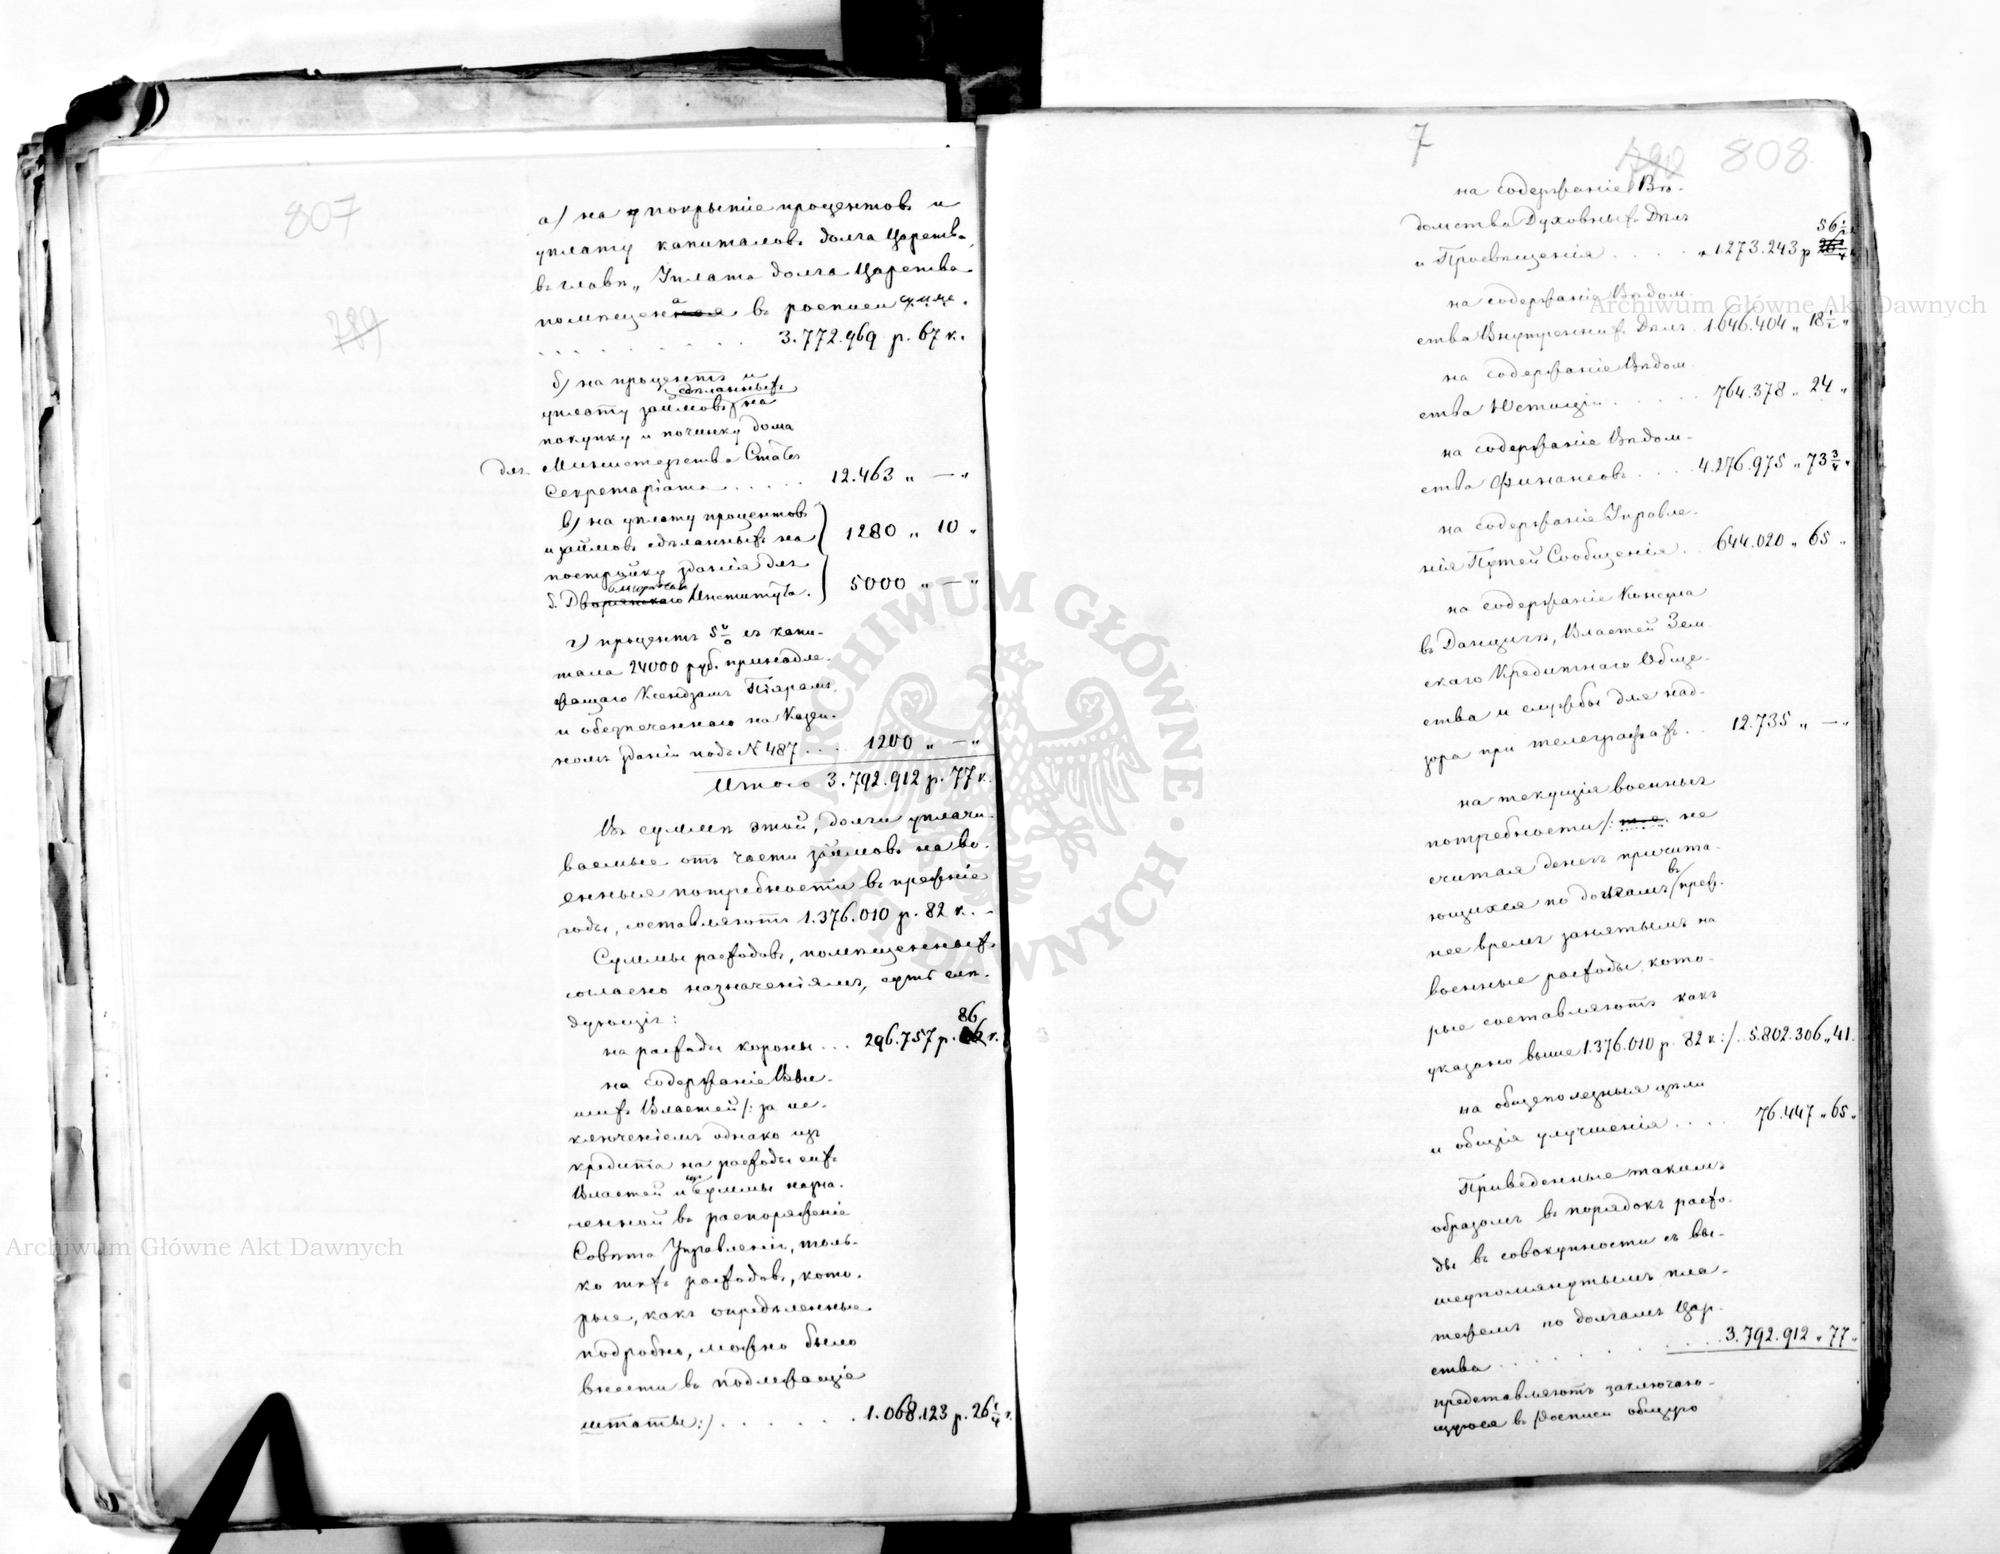 807
789
а) на покрытіе процентовъ и
уплату капиталовъ долга Царства,
въ главѣ „Уплата долга Царства
помѣщена въ росписи сумма.
. . . . . . . . 3.772.969 р. 67 к.
б) на проценты и
сдѣланныхъ
уплату займовъ на
покупку и починку дома
для Министерства Статсъ
Секретаріата . . . . . 12.463 „ — „
в) на уплату процентовъ
и займовъ сдѣланныхъ на 1280 „ 10 „
постройку зданія для
б. Дворянскаго Института. 5000 „ — „
г) процентъ 5% съ капи-
тала 24000 руб. принадле-
жащаго Ксендзамъ Піярамъ,
и обезпеченнаго на Казен-
номъ зданіи подъ N 487 . . . . 1200 „ — „
Итого 3.792.912 р. 77 к.
Въ суммѣ этой, долги уплачи-
ваемые отъ части займовъ на во-
енныя потребности въ прежніе
годы, составляютъ 1.376.010 р. 82 к. –
Суммы расходовъ, помѣщенныхъ
согласно назначеніямъ, суть слѣ-
дующія:
86
на расходы короны . . . 296.757 р. к.
на содержаніе Выс-
шихъ Властей /: за ис-
ключеніемъ однако изъ
кредита на расходы сихъ
Властей и суммы назна-
ченной въ распоряженіе
Совѣта Управленія, толь-
ко тѣхъ расходовъ, кото-
рые, какъ опредѣленные
подробно, можно было
внести въ подлежащіе
штаты :/ . . . . . . . 1.068.123 р. 26 1/4 к.
7
790 808
на содержаніе Вѣ-
домства Духовныхъ Дѣлъ 56 1/2
и Просвѣщенія . . . . „ 1273.243 р
на содержаніе Вѣдом-
ства Внутреннихъ Дѣлъ. 1.646.404 „ 18 1/2 „
на содержаніе Вѣдом-
ства Юстиціи . . . . . . 764.378 „ 24 „
на содержаніе Вѣдом-
ства Финансовъ . . . . 4.276.975 „ 73 3/4 „
на содержаніе Управле-
нія Путей Сообщенія . . 644.020 „ 65 „
на содержаніе Консула
въ Данцигѣ, Властей Зем-
скаго Кредитнаго Обще-
ства и службы для над-
зора при телеграфахъ . . 12.735 „ — „
на текущія военныя
потребности /: не
считая денегъ причита-
ющихся по долгамъ въ преж-
нее время занятымъ на
военные расходы, кото-
рые составляютъ какъ
указано выше 1.376.010 р. 82 к :/ . . 5.802.306 „ 41.
на общеполезныя цѣли
и общія улучшенія . . . . 76.447 „ 65 „
Приведенные такимъ
образомъ въ порядокъ расхо-
ды въ совокупности съ вы-
шеупомянутымъ пла-
тежемъ по долгамъ Цар-
ства . . . . . . . . . 3.792.912 „ 77 „
представляютъ заключаю-
щуюся въ Росписи общую
Archiwum Główne Akt Dawnych
Archiwum Główne Akt Dawnych
ARCHIWUM GŁÓWNE · AKT DAWNYCH ·